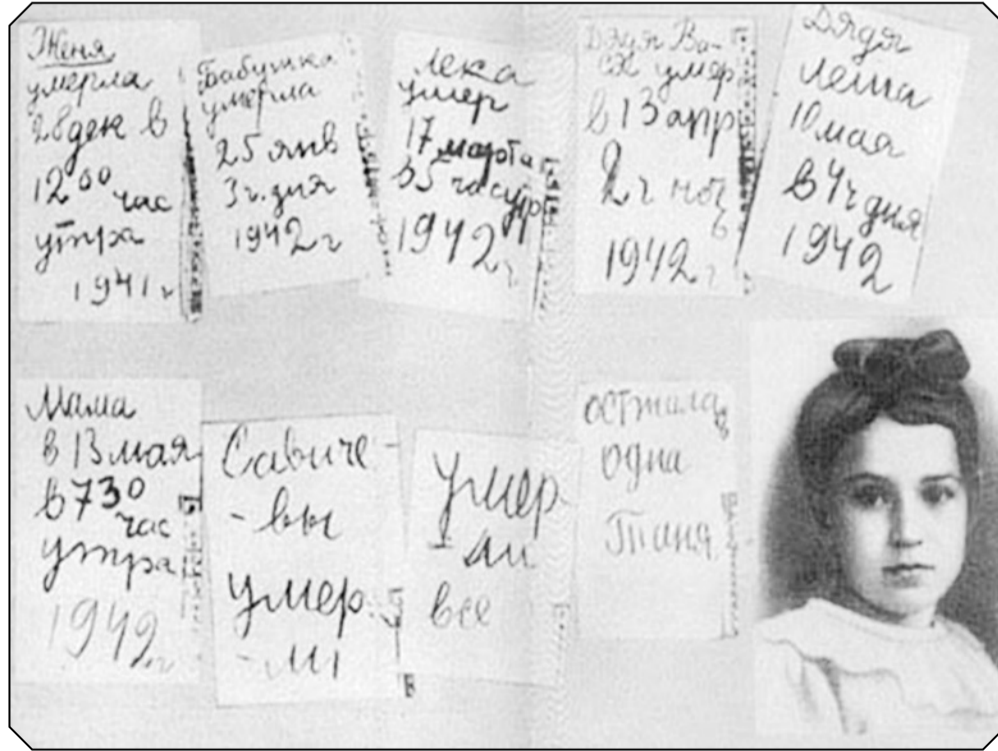 Женя
умерла
28 дек в
12 00 час
утра
1941 г
Бабушка
умерла
25 янв
3 ч. дня
1942 г
Лека
умер
17 марта
в 5 час утр
1942 г
Дядя Ва-
ся умер
в 13 апр
2 ч ноч
ь
1942 г
Дядя
Леша
10 мая
в 4 ч дня
1942
Мама
в 13 мая
в 7 30
час
утра
1942 г
Савиче-
-вы
умер-
-ли
умер
-ли
все
осталась
одна
Таня